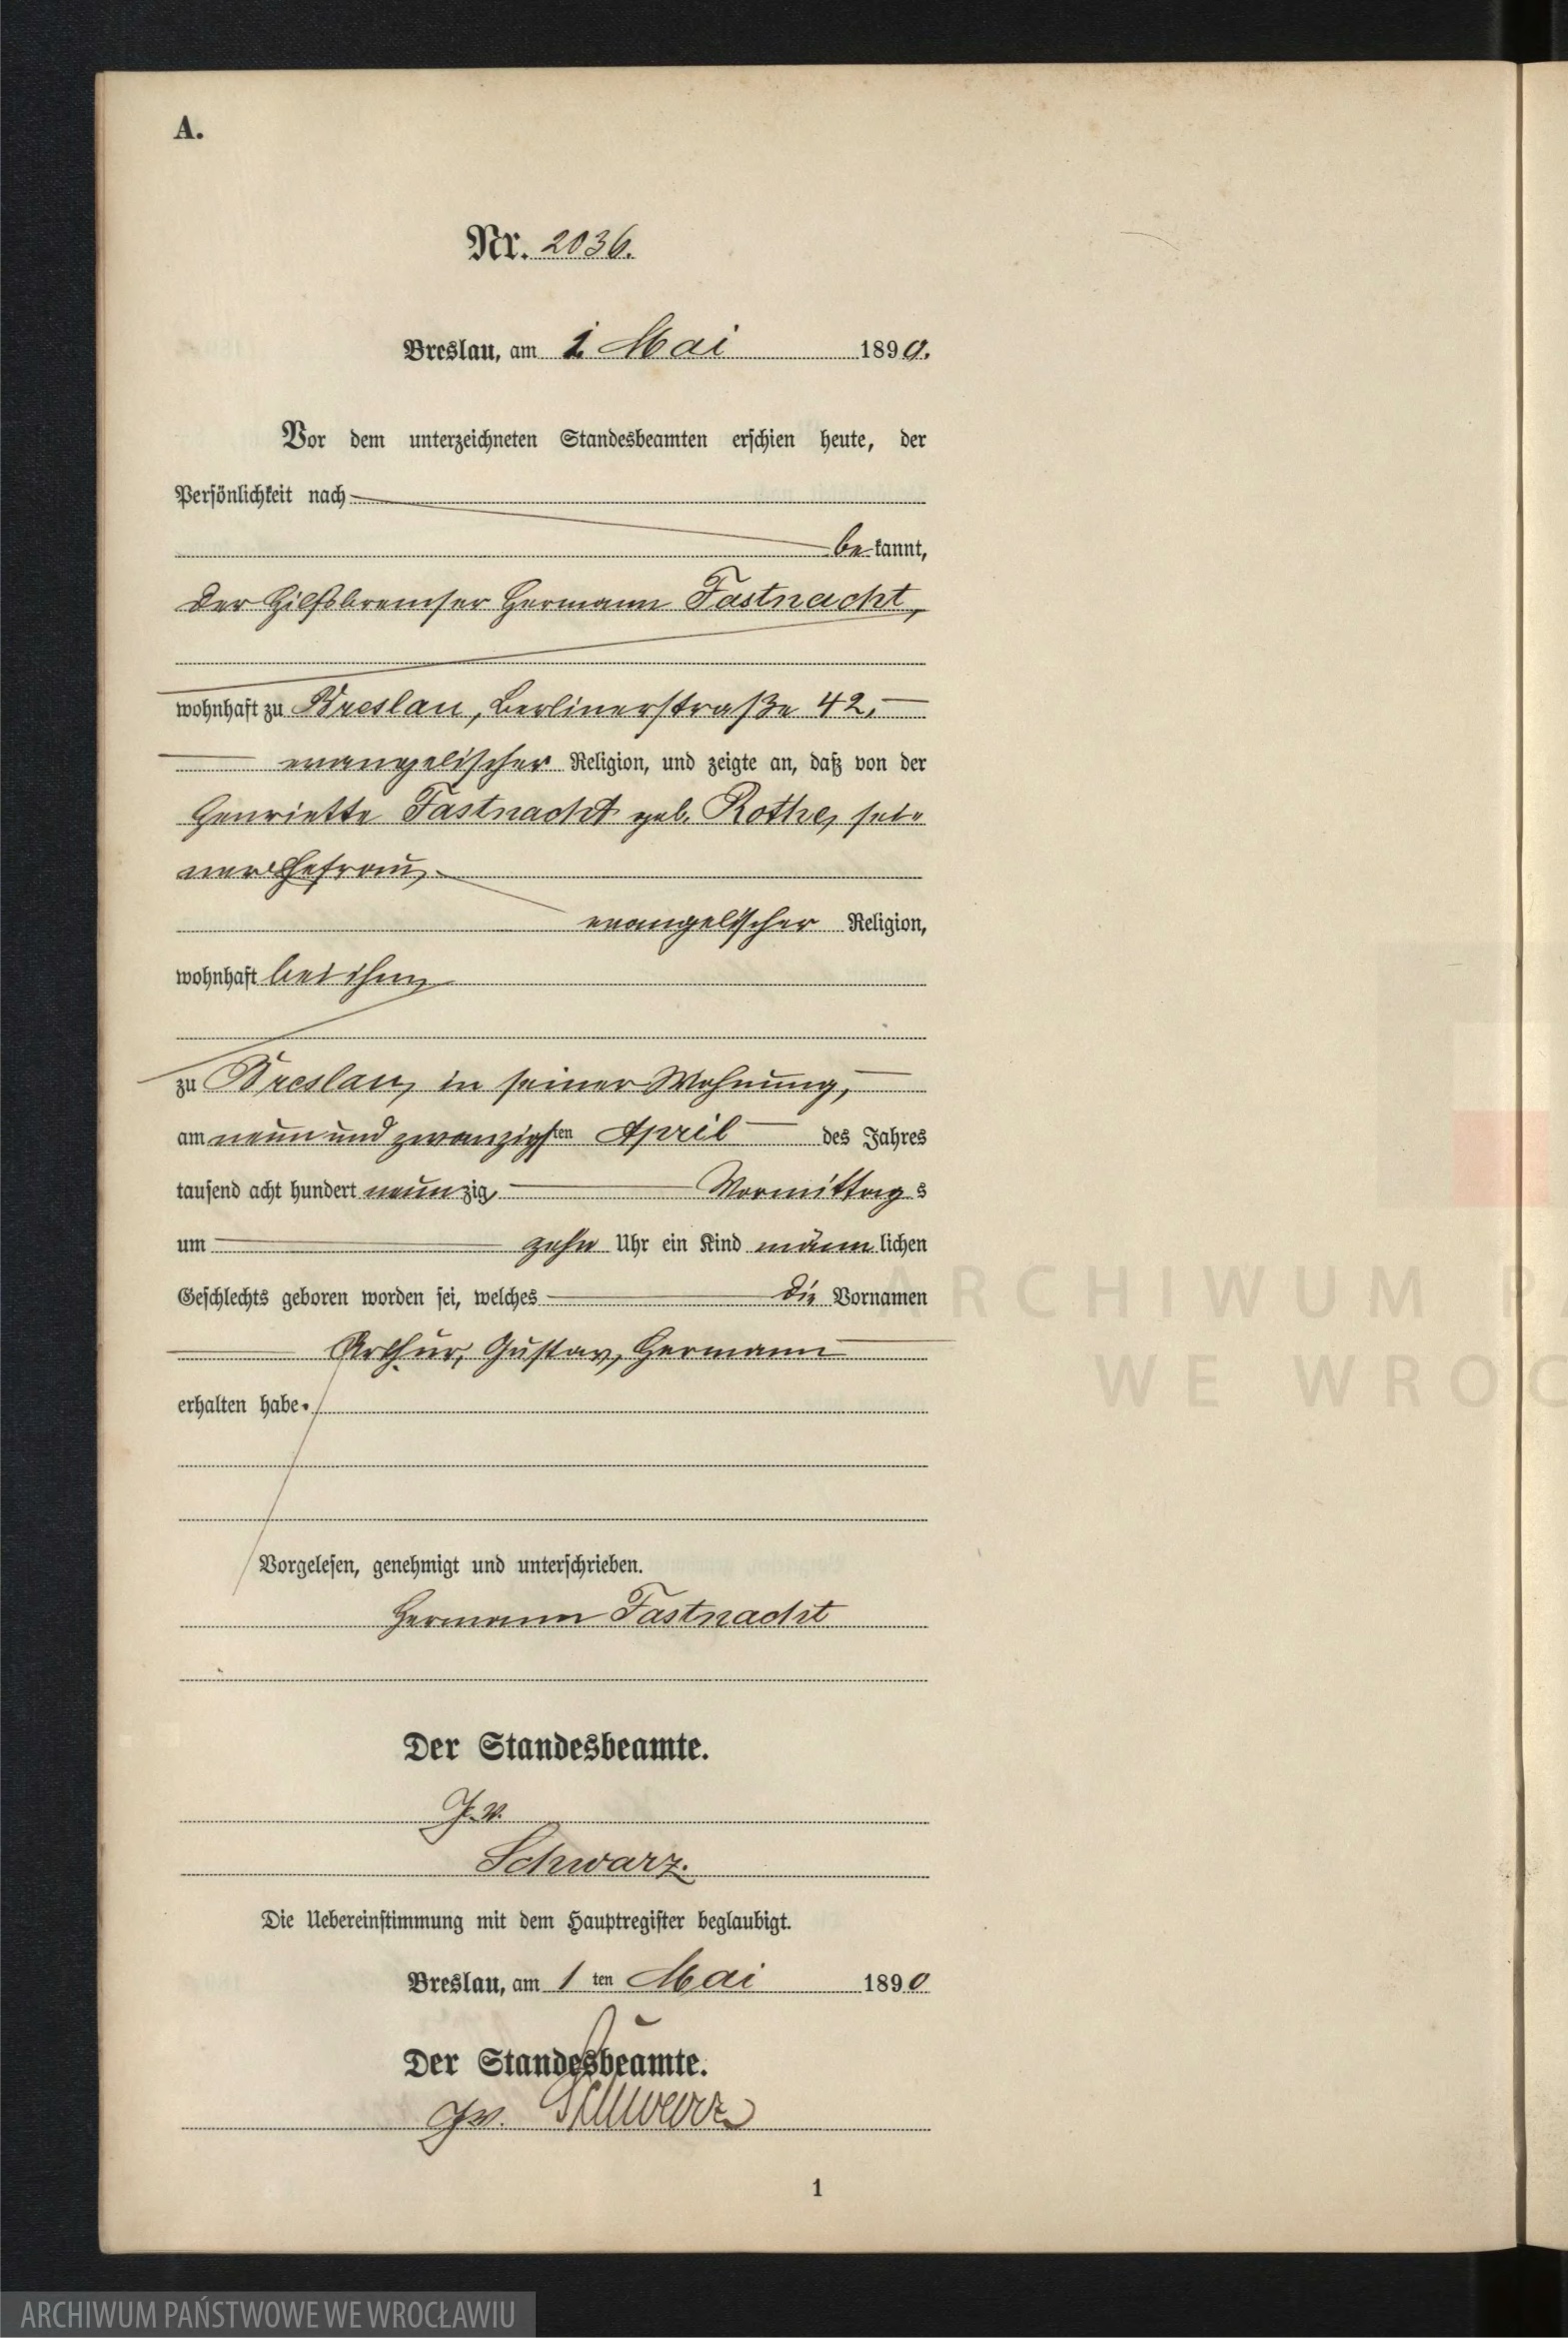 A.
Nr. 2036.
Breslau, am 1. Mai 1890.
Vor dem unterzeichneten Standesbeamten erschien heute, der
Persönlichkeit nach
bekannt,
der Hilfsbremser Hermann Fastnacht,
wohnhaft zu Breslau, Berlinerstraße 42,
evangelischer Religion, und zeigte an, daß von der
Henriette Fastnacht geb. Rothe, sei-
ner Ehefrau,
evangelischer Religion,
wohnhaft bei ihm
zu Breslau, in seiner Wohnung,
am neun und zwanzigsten April des Jahres
tausend acht hundert neunzig Vormittags
um zehn Uhr ein Kind männlichen
Geschlechts geboren worden sei, welches die Vornamen
Arthur, Gustav, Hermann
erhalten habe.
Vorgelesen, genehmigt und unterschrieben.
Hermann Fastnacht
Der Standesbeamte.
J. V.
Schwarz.
Die Uebereinstimmung mit dem Hauptregister beglaubigt.
Breslau, am 1ten Mai 1890
Der Standesbeamte.
J. V. Schwarz
1
ARCHIWUM P
WE WROC
ARCHIWUM PAŃSTWOWE WE WROCŁAWIU